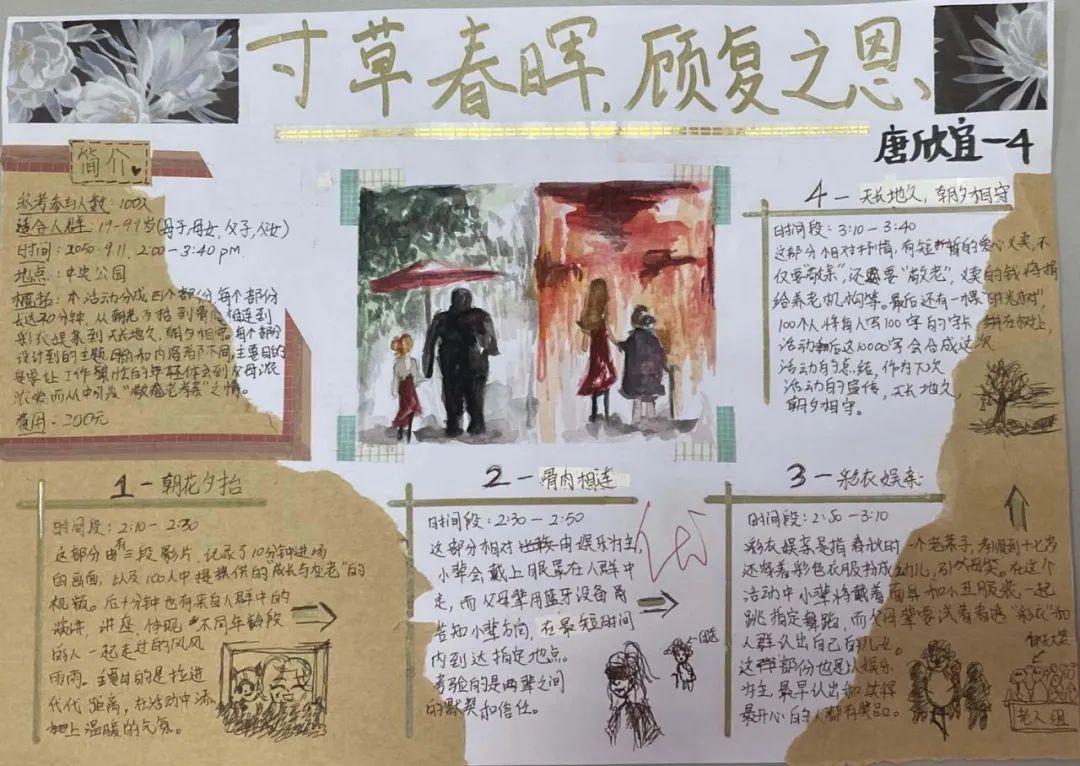 寸草春晖,顾复之恩、
唐欣宜一4
简介
参考参与人数:100人
适合人群:19-99岁(母子,母女,父子,父女)
时间:2050.9.11, 2:00-3:40 pm
地点:中央公园
概括:本活动分成四个部份,每个部份
长达20分钟,从朝花夕拾到骨肉相连到
彩衣娱亲到天长地久,朝夕相守。每个部份
设计到的主题目的和内容都不同,主要目的
是要让工作繁忙的年轻体会到父母浓
浓爱而从中引发“敬慈老者”之情。
费用:200元
1-朝花夕拾
时间段:2:10-2:30
这部分由有三段影片,记录了10分钟进场
的画面,以及100人中提供的“成长与变老”的
视频。后十分钟也有来自人群中的
演讲,讲座,体现不同年龄段
的人一起走过的风风
雨雨。主要目的是拉进
代代距离,在活动中添
上温暖的气氛。
2-骨肉相连
时间段:2:30-2:50
这部分相对由娱乐为主,
小辈会戴上眼罩在人群中
走,而父母辈用蓝牙设备
告知小辈方向,在最短时间
内到达指定地点。
考验的是两辈之间
的默契和信任。
优
3-彩衣娱亲
时间段:2:50-3:10
彩衣娱亲是指春秋时一个老莱子,孝顺到七十岁
还穿着彩色衣服扮成幼儿,引父母笑。在这个
活动中小辈将戴着面具和小丑服装一起
跳指定舞蹈,而父母辈要试着看透“彩衣”和
人群认出自己的儿女。
这部份也是以娱乐
为主,最早认出和笑得
最开心的人都有奖品。
哈哈大笑
老人组
4-天长地久,朝夕相守
时间段:3:10-3:40
这部分相对抒情,有短暂的爱心义卖,不
仅要敬亲”还要“敬老”,义卖的钱将捐
给养老机构等。最后还有一棵“时光树”,
100个人将每人写100字的字卡绑在树上
活动后这10000字会合成这次
活动的总结,作为下次
活动的宣传,天长地久,
朝夕相守。